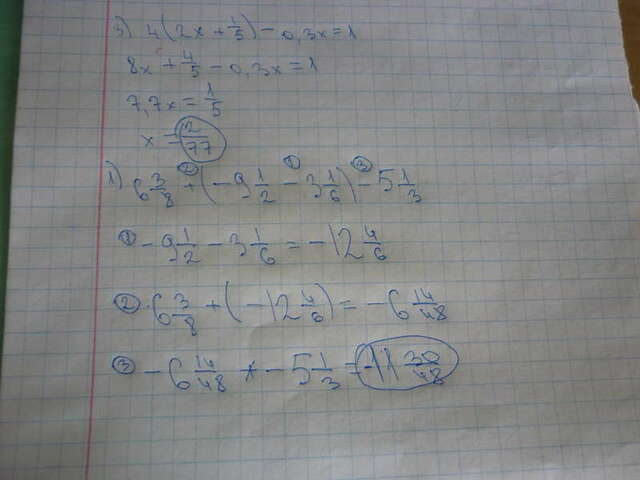 3) 4(2x + 1/5) - 0,3x = 1
8x + 4/5 - 0,3x = 1
7,7x = 1/5
x = 2/77
1) 6 3/8 ② + (-9 1/2 ① - 3 1/6) ③ - 5 1/3
① -9 1/2 - 3 1/6 = -12 4/6
② 6 3/8 + (-12 4/6) = -6 14/48
③ -6 14/48 - 5 1/3 = -11 30/48